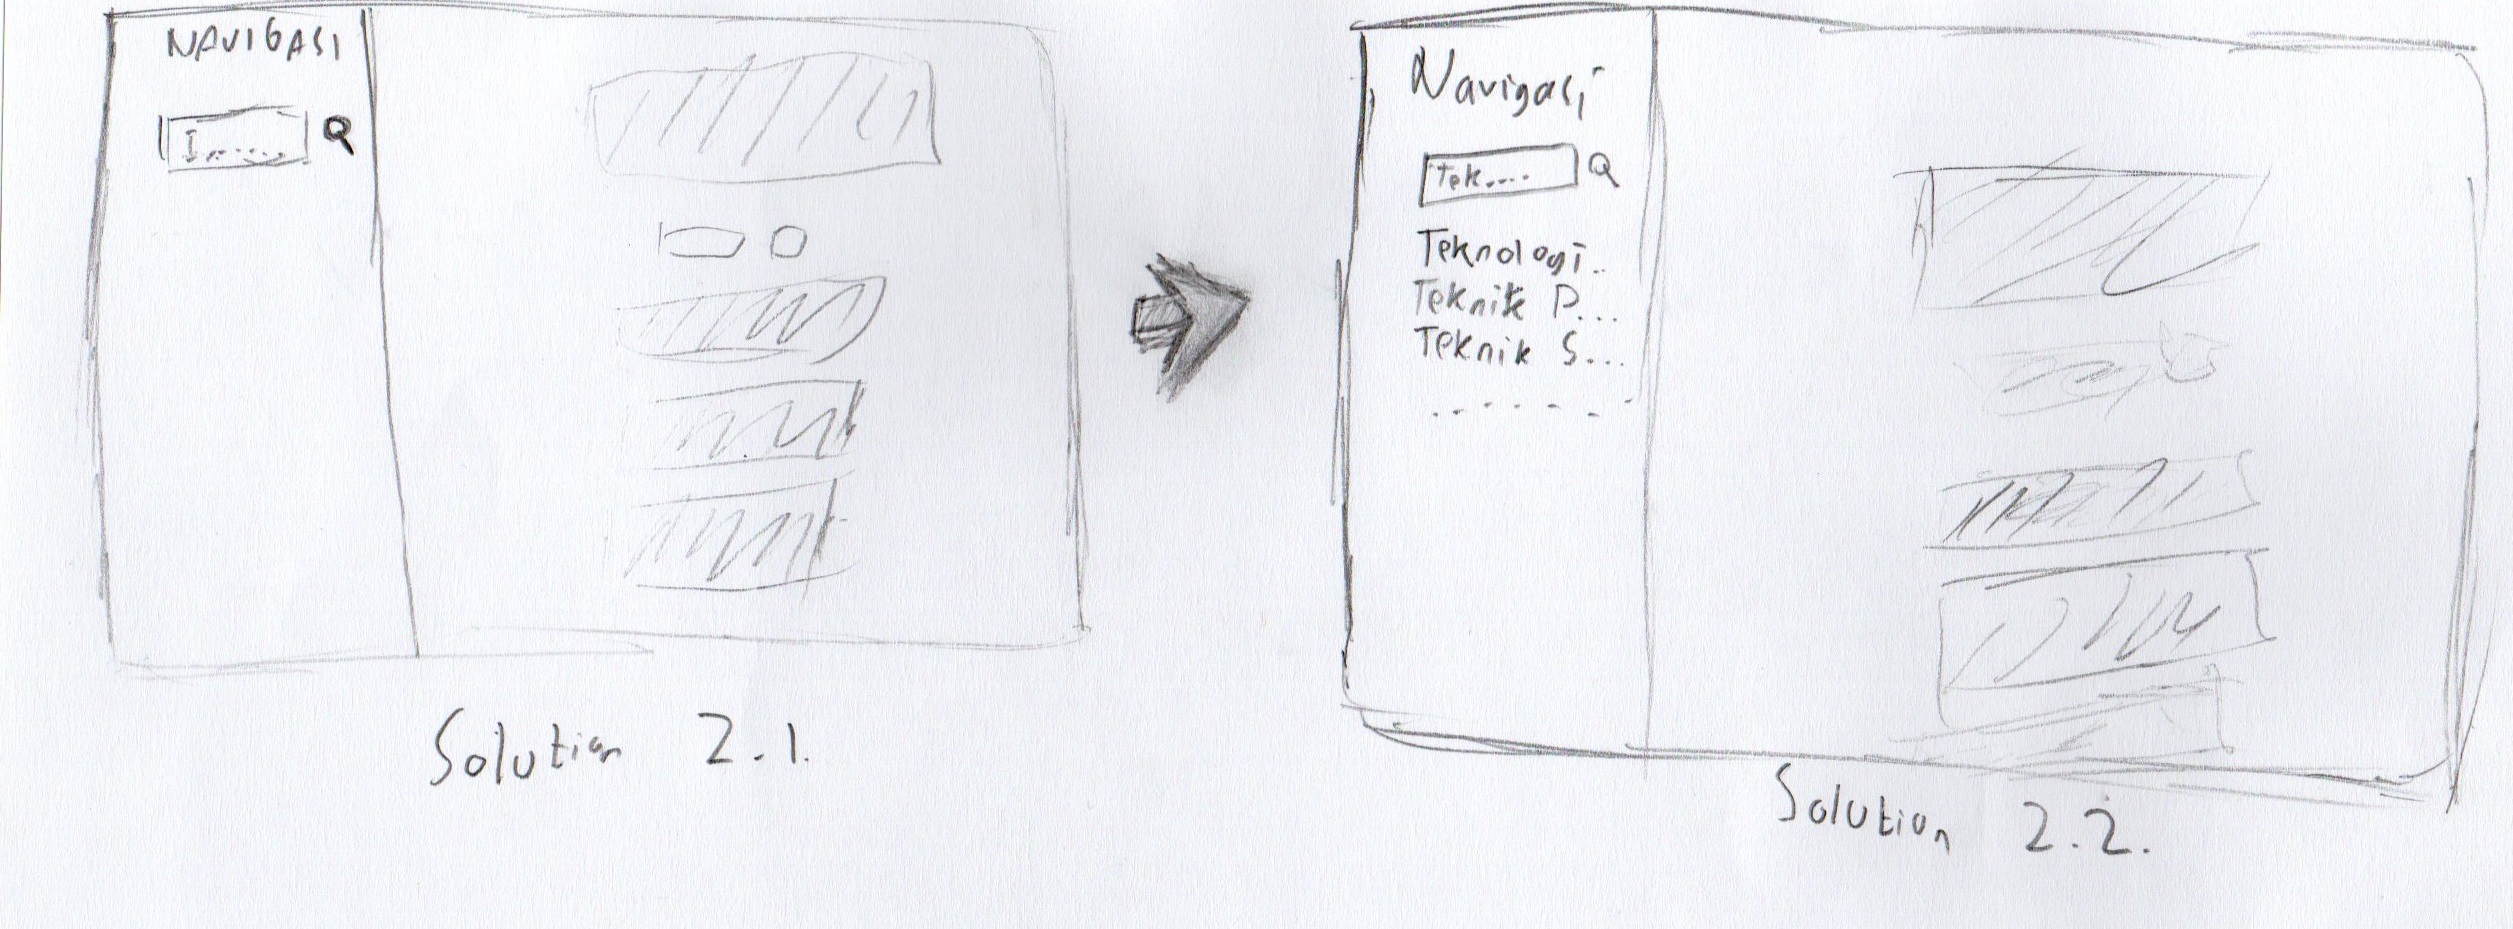 NAVIGASI
I......
Solution 2.1.
Navigasi
Tek....
Teknologi..
Teknik P...
Teknik S...
.......
Solution 2.2.